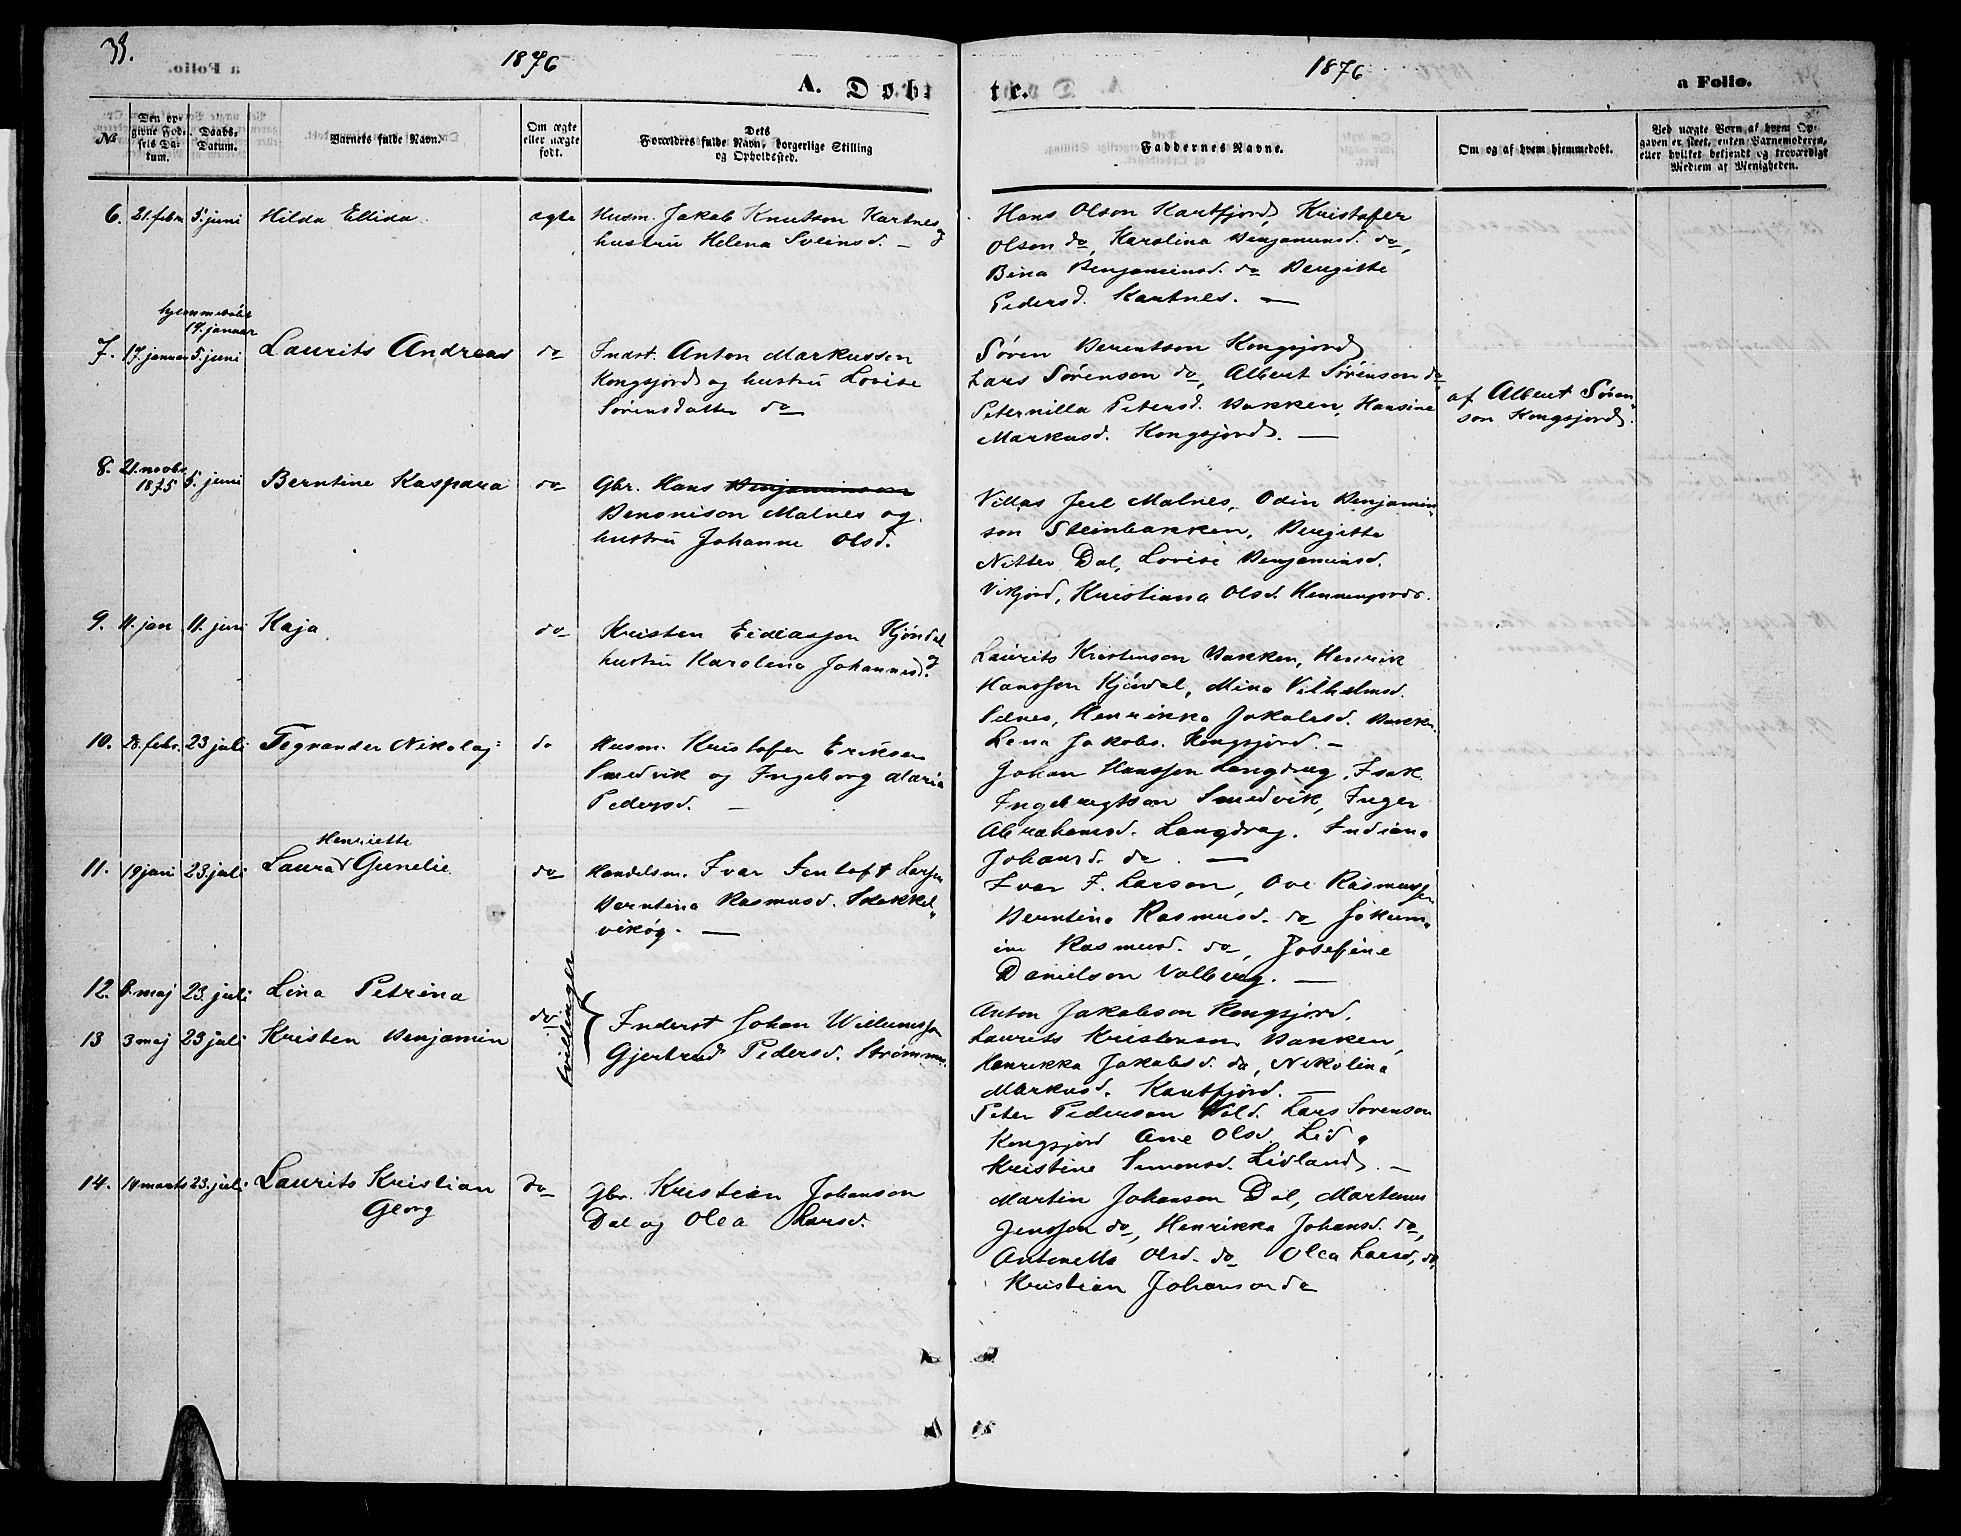 1876
1876
A. Døbte.
a Folio.
№
Den opgivne Fødsels Datum.
Daabs-Datum.
Barnets fulde Navn.
Om ægte eller uægte født.
Dets Forældres fulde Navn, borgerlige Stilling og Opholdssted.
Faddernes Navne.
Om og af hvem hjemmedøbt.
Ved uægte Børn af hvem Opgaven er skeet, enten Barnemoderen, eller hvilket bekjendt og troværdigt Medlem af Menigheden.
6. 21. febr. 5. juni Hilda Ellida. ægte
Husm. Jakob Knutson Kartnes og
hustru Helena Sveinsd. —
Hans Olson Kartfjord, Kristofer
Olson do, Karolina Benjaminsd. do,
Bina Benjaminsd. do Bergitte
Pedersd. Kartnes. —
hjemmedøbt
19. januar
7. 17. januar 5. juni Laurits Andreas do
Indst. Anton Markussen
Kongsjord og hustru Lovise
Sørensdatter do
Søren Berentson Kongsjord
Lars Sørenson do, Albert Sørenson do
Peternilla Petersd. Bakken, Hansine
Markusd. Kongsjord. —
af Albert Søren-
son Kongsjord.
8. 21. novbr. 1875 5. juni Berntine Kaspara do
Gbr. Hans Benjaminson
Benonison Malnes og
hustru Johanne Olsd.
Villas Juel Malnes, Odin Benjamin-
son Steinbakken, Bergitte
Nitter Dal, Lovise Benjaminsd.
Vikjord, Kristiana Olsd.
9. 11. jan 11. juni Kaja. do
Kristen Kjørdal og
hustru Karolina Johannesd.
Laurits Kristenson Bakken, Henrik
Hansson Kjørdal, Mina Vilhelmsd.
Selnes, Henrikka Jakobsd. Bakken
Lena Jakobs. Kongsjord. —
10. 28. febr. 23 juli Tegnander Nikolaj do
Husm. Kristofer Eriksen
Smedvik og Ingeborg Maria
Pedersd. —
Johan Hansson Langdrag, Isak
Ingebregtson Smedvik, Inger
Abrahamsd. Langdrag. Indiana
Johansd. do. —
Henriette
11. 19 jan 23. juli Laura Gunelie do
Handelsm. Ivar Jentoft Larsen
Berntina Rasmusd.
Ivar J. Larson, Ove Rasmussen
Berntina Rasmusd. do
Rasmusd. do, Josefine
Danielson Valberg. —
12. 8. maj 23. juli Lina Petrina
13 3 maj 23 juli Kristen Benjamin
do
tvillinger
Inderst Johan Willumssen
Gjertrud Pedersd. Strømmen.
Anton Jakobson Kongsjord.
Laurits Kristenson Bakken,
Henrikka Jakobsd. do, Nikolina
Markusd. Kartfjord. —
Peter Pederson Vold. Lars Sørenson
Kongsjord Ane Olsd. Lid,
Kristine Simonsd. Lidland. —
14. 14 marts 23. juli Laurits Kristian
Georg
do
Gbr. Kristian Johanson
Dal og Olea Larsd.
Martin Johanson Dal,
Jenssen do, Henrikka Johansd. do,
Antonette Olsd. do Olea Larsd. do,
Kristian Johanson do